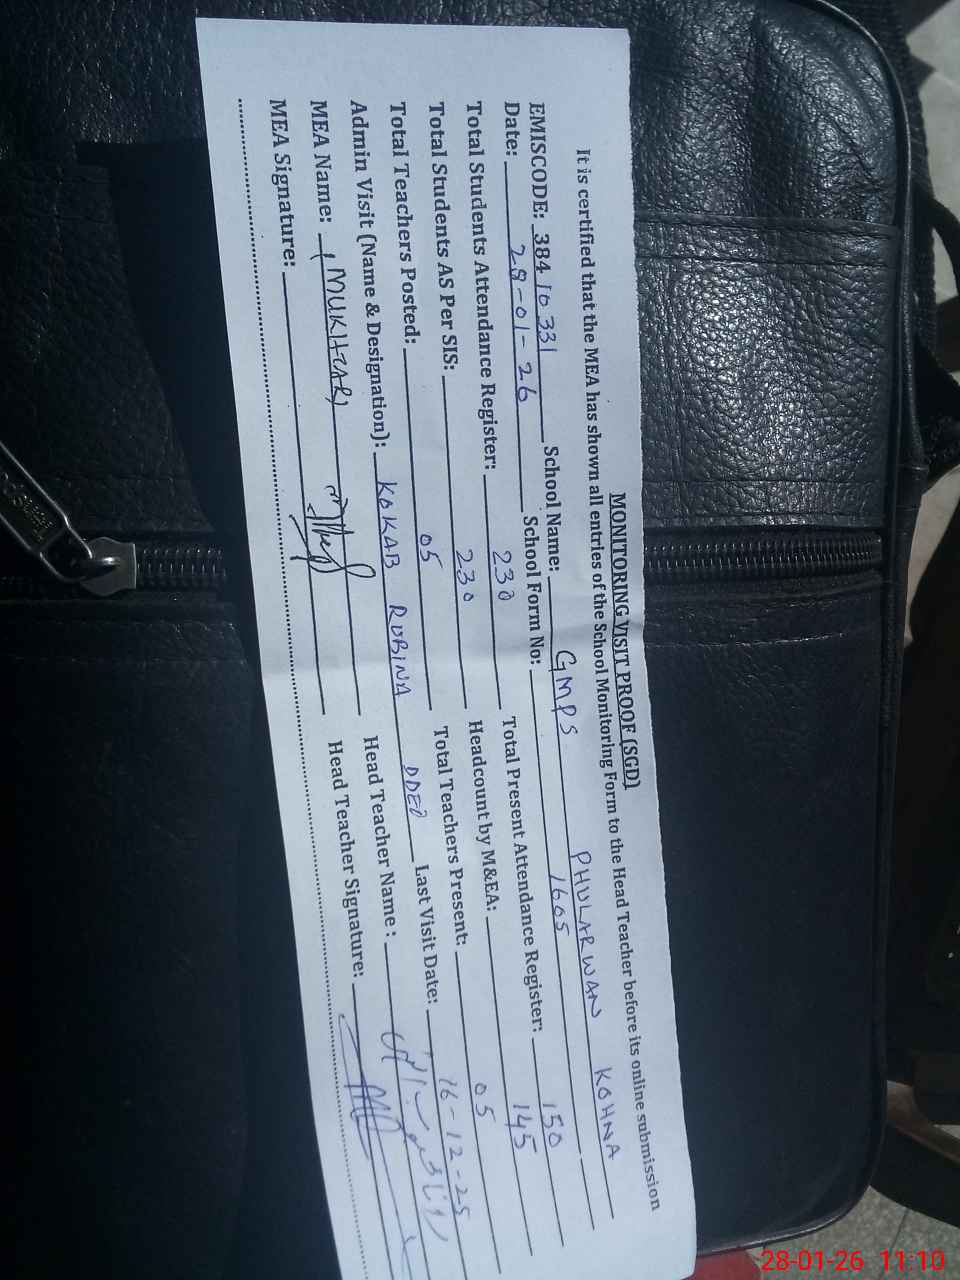 MONITORING VISIT PROOF (SGD)
It is certified that the MEA has shown all entries of the School Monitoring Form to the Head Teacher before its online submission
EMISCODE: 38410331 School Name: GMPS PHULARWAN KOHNA
Date: 28-01-26 School Form No: 1605
Total Students Attendance Register: 230 Total Present Attendance Register: 150
Total Students AS Per SIS: 230 Headcount by M&EA: 145
Total Teachers Posted: 05 Total Teachers Present: 05
Admin Visit (Name & Designation): KOKAB RUBINA DDEO Last Visit Date: 16-12-25
MEA Name: MUKHTAR Head Teacher Name:
MEA Signature: Head Teacher Signature:
28-01-26 11:10